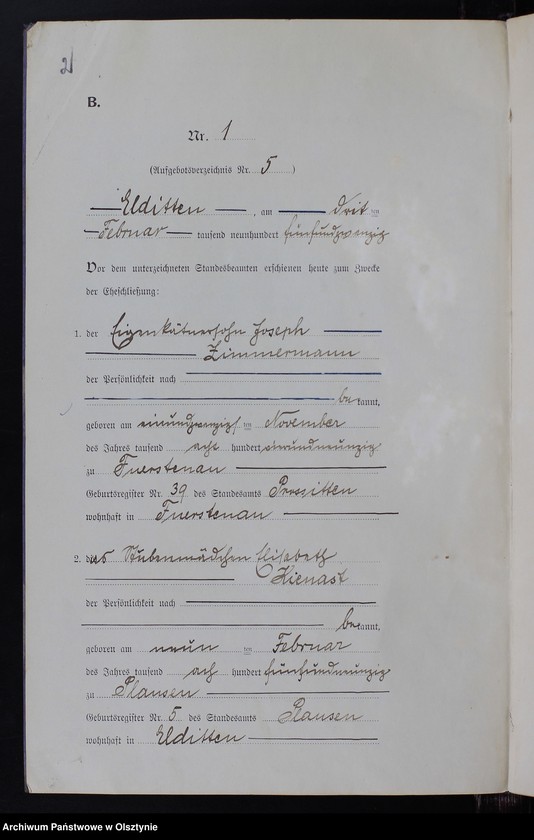 2
B.
Nr. 1
(Aufgebotsverzeichnis Nr. 5)
Elditten, am drit ten
Februar tausend neunhundert fünfundzwanzig
Vor dem unterzeichneten Standesbeamten erschienen heute zum Zwecke
der Eheschließung:
1. der Eigenkätnersohn Joseph
Zimmermann
der Persönlichkeit nach
be kannt,
geboren am einundzwanzigs ten November
des Jahres tausend acht hundert einundneunzig
zu Fuerstenau
Geburtsregister Nr. 39 des Standesamts Prossitten
wohnhaft in Fuerstenau
2. das Stubenmädchen Elisabeth
Kienast
der Persönlichkeit nach
be kannt,
geboren am neun ten Februar
des Jahres tausend ach hundert fünfundneunzig
zu Plausen
Geburtsregister Nr. 5 des Standesamts Plausen
wohnhaft in Elditten
Archiwum Państwowe w Olsztynie